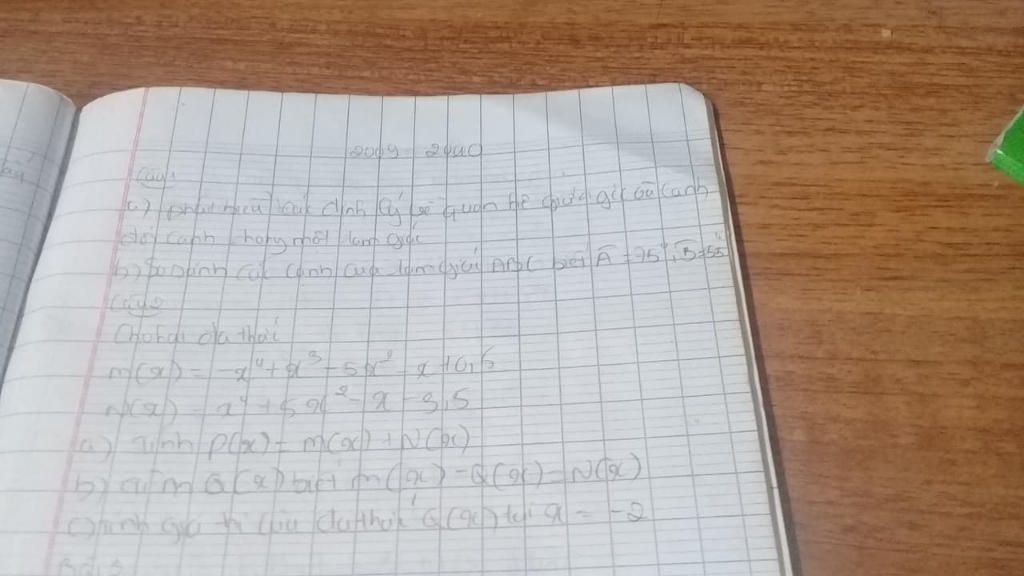 Câu1
a) phát biểu các định lý về quan hệ giữa góc và cạnh
đối cạnh trong một tam giác
b) So sánh các cạnh của tam giác ABC biết A = 75°, B=55°
Câu2
Cho hai đa thức
M(x) = -x⁴+x³-5x²-x+0,5
N(x) = x⁴+5x²-x-3,5
a) Tính P(x)=M(x)+N(x)
b) tìm Q(x) biết M(x)-Q(x)=N(x)
c) tính giá trị của đa thức Q(x) tại x = -2